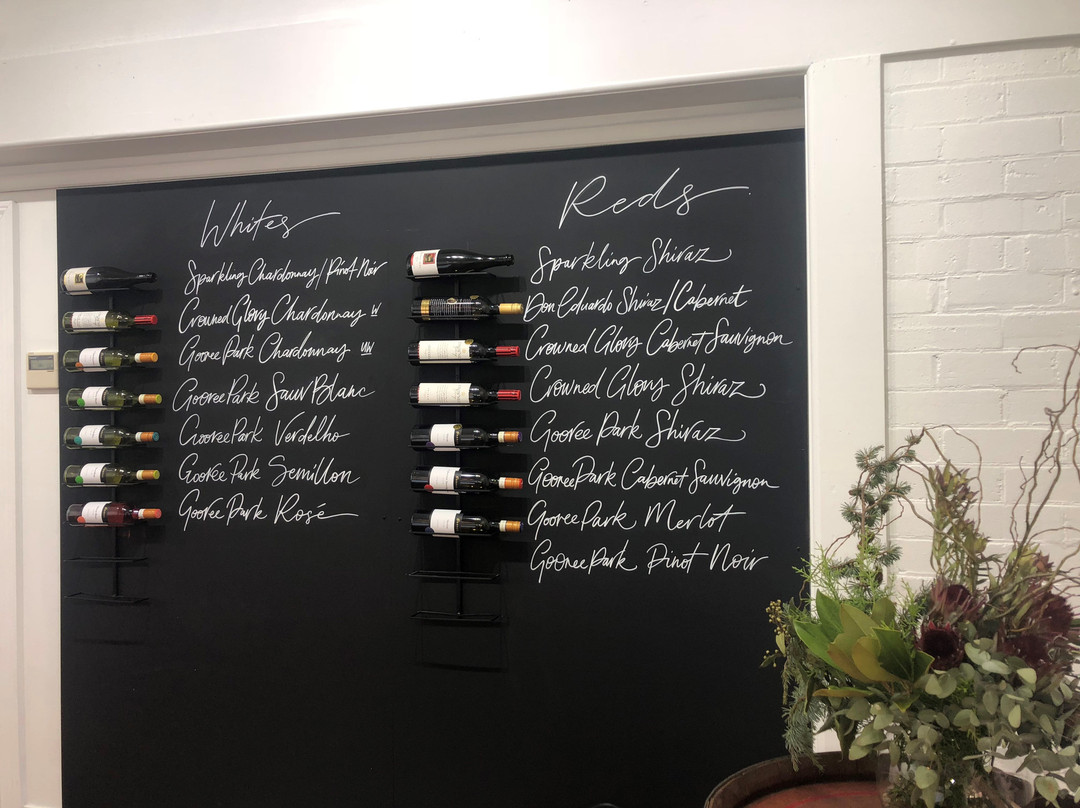 Whites
Sparkling Chardonnay / Pinot Noir
Crowned Glory Chardonnay W
Gooree Park Chardonnay UW
Gooree Park Sauv Blanc
Gooree Park Verdelho
Gooree Park Semillon
Gooree Park Rosé
Reds
Sparkling Shiraz
Don Eduardo Shiraz / Cabernet
Crowned Glory Cabernet Sauvignon
Crowned Glory Shiraz
Gooree Park Shiraz
Gooree Park Cabernet Sauvignon
Gooree Park Merlot
Gooree Park Pinot Noir